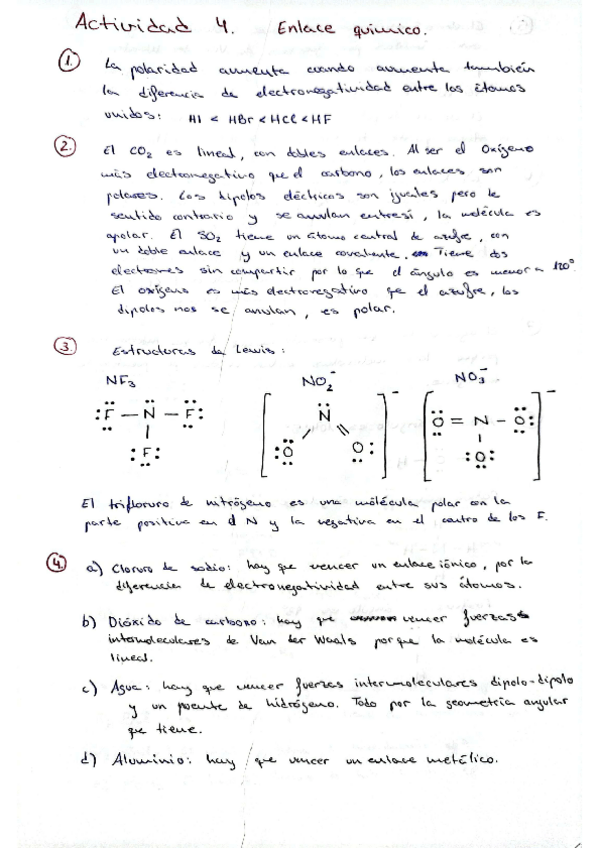 Actividad 4. Enlace químico.
1. La polaridad aumenta cuando aumenta también
la diferencia de electronegatividad entre los átomos
unidos: HI < HBr < HCl < HF
2. El CO2 es lineal, con dobles enlaces. Al ser el Oxígeno
más electronegativo que el carbono, los enlaces son
polares. Los dipolos eléctricos son iguales pero de
sentido contrario y se anulan entresí, la molécula es
apolar. El SO2 tiene un átomo central de azufre, con
un doble enlace y un enlace covalente. Tiene dos
electrones sin compartir por lo que el ángulo es menor a 120°.
El oxígeno es más electronegativo que el azufre, los
dipolos nos se anulan, es polar.
3. Estructuras de Lewis:
NF3 NO2- NO3-
F — N — F N O = N - O
F O O O
El trifloruro de nitrógeno es una molécula polar con la
parte positiva en el N y la negativa en el centro de los F.
4. a) Cloruro de sodio: hay que vencer un enlace iónico, por la
diferencia de electronegatividad entre sus átomos.
b) Dióxido de carbono: hay que vencer fuerzas
intermoleculares de Van der Waals porque la molécula es
lineal.
c) Agua: hay que vencer fuerzas intermoleculares dipolo-dipolo
y un puente de hidrógeno. Todo por la geometría angular
que tiene.
d) Aluminio: hay que vencer un enlace metálico.